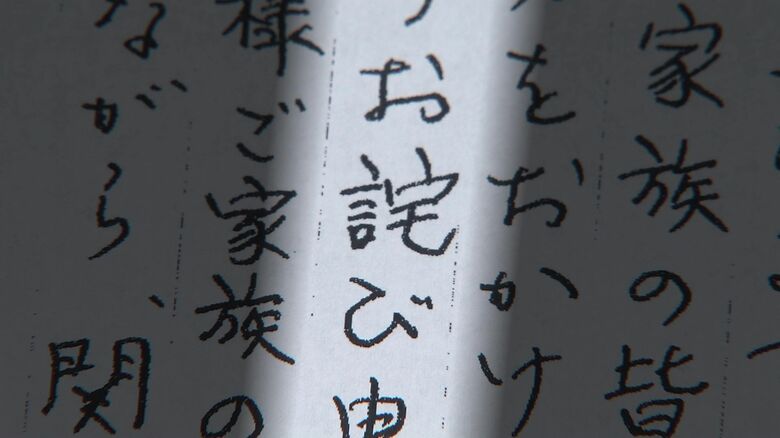 家族の皆
をおかけ
お詫び申
様ご家族の
ながら、関